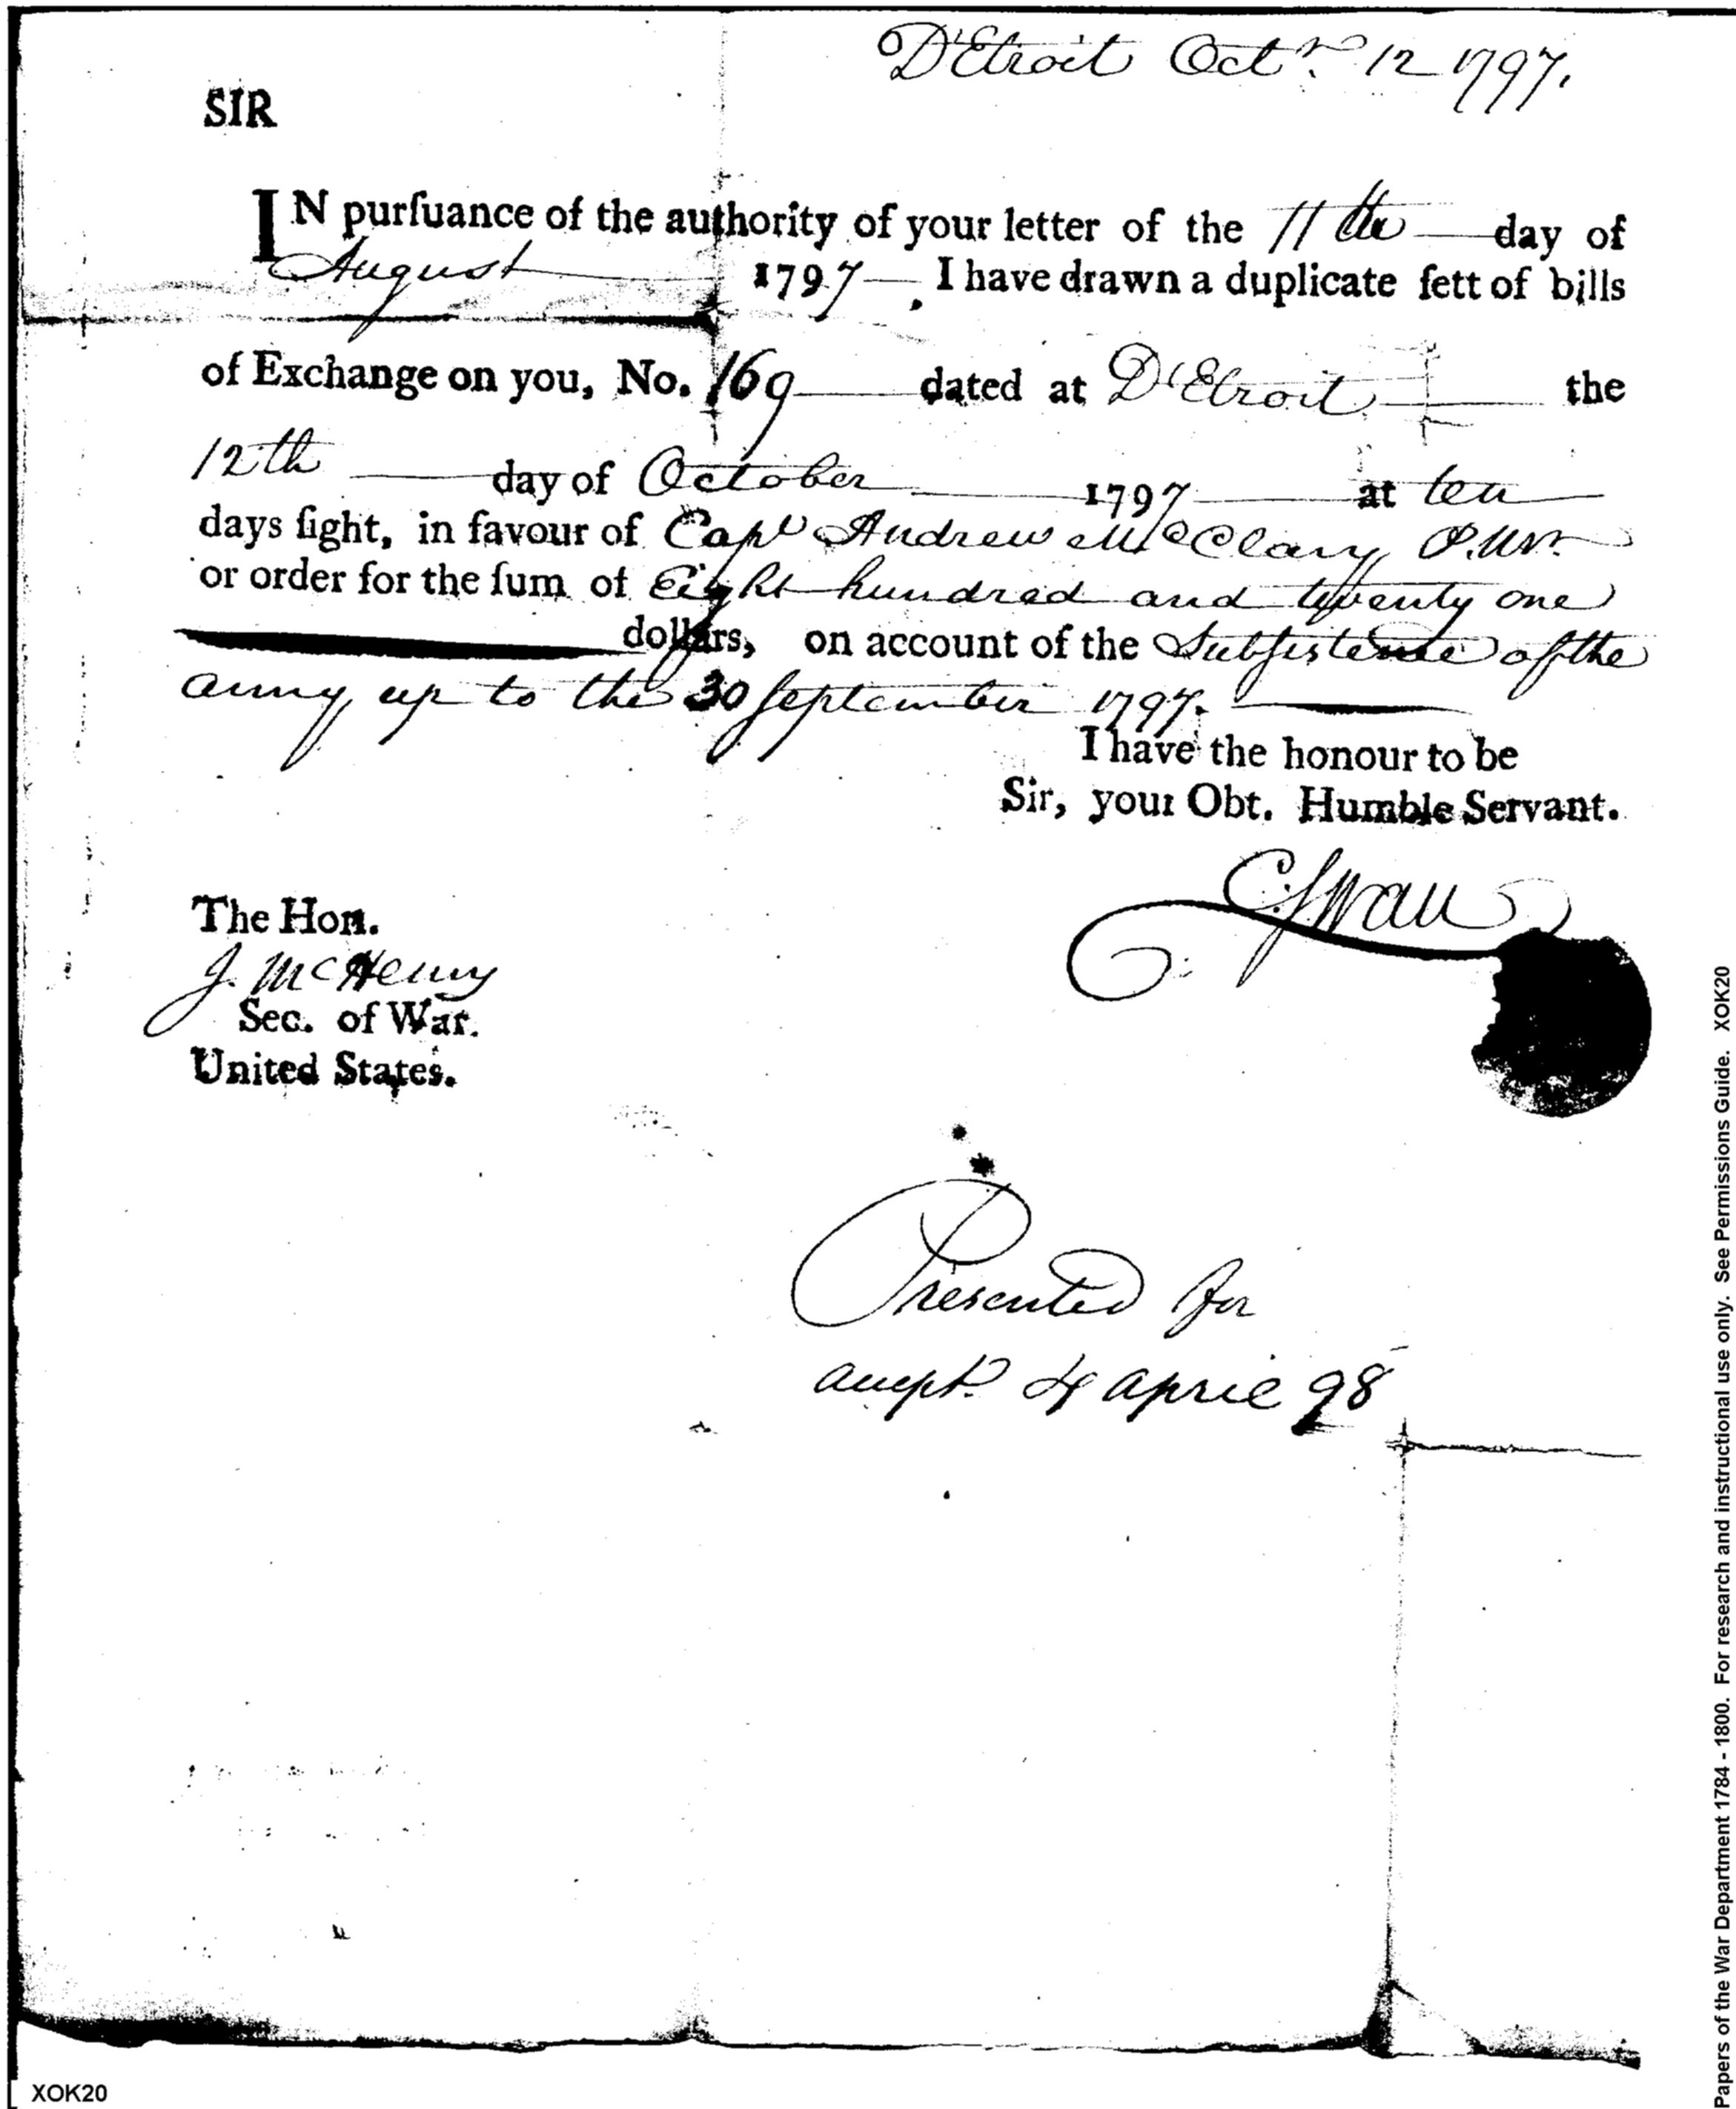 D'Etroit Octr. 12 1797.
SIR
IN purſuance of the authority of your letter of the 11th day of
August 1797 , I have drawn a duplicate ſett of bills
of Exchange on you, No. 169 dated at D'Etroit the
12th day of October 1797 at ten
days ſight, in favour of Capt Andrew McClary P.Mr.
or order for the ſum of Eight hundred and twenty one
dollars, on account of the Subsistence of the
army up to the 30 September 1797.
I have the honour to be
Sir, your Obt. Humble Servant.
C. Swan
The Hon.
J. McHenry
Sec. of War.
United States.
Presented for
accept. 4 april 98
XOK20
Papers of the War Department 1784 - 1800. For research and instructional use only. See Permissions Guide. XOK20